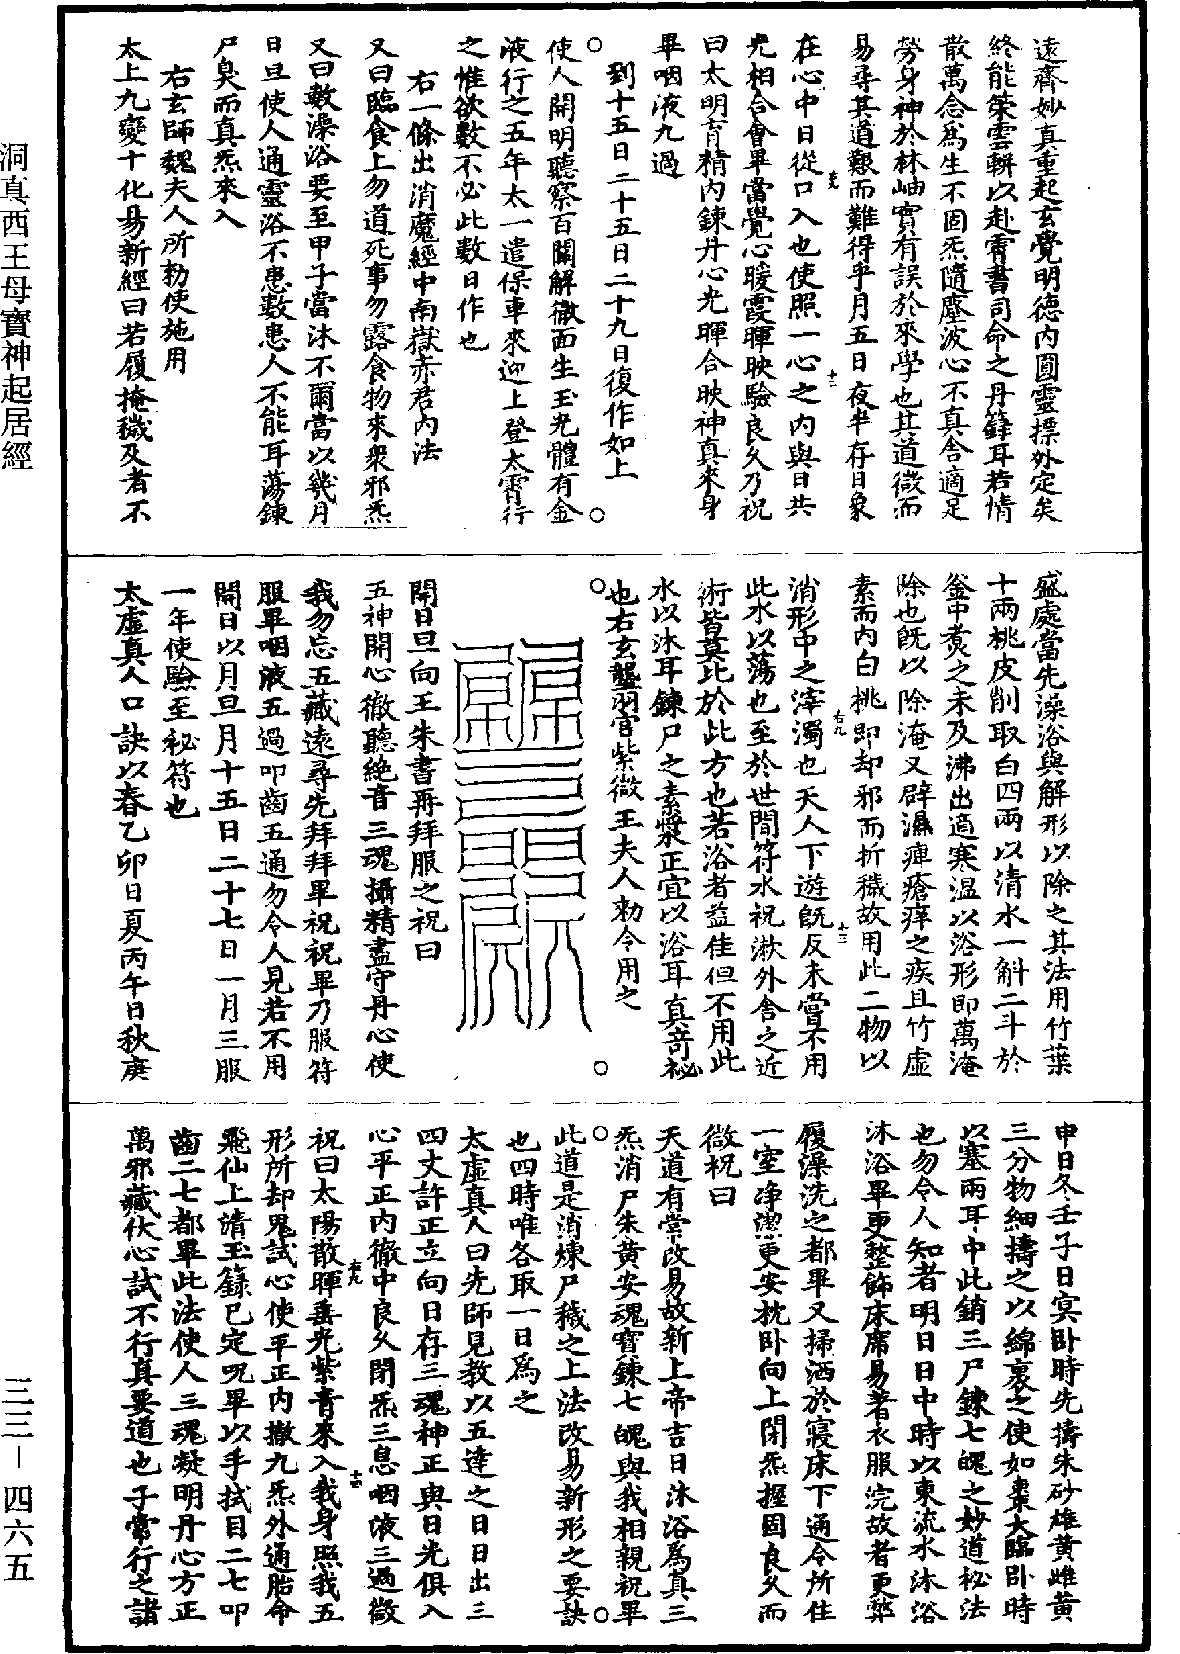 洞真西王母寶神起居經
三三—四六五
遠齊妙真重起玄覺明德内圓靈摽外定矣
終能策雲軿以赴霄書司命之丹籙耳若情
散萬念為生不固炁隨塵波心不真舍適足
勞身神於林岫實有誤於來學也其道微而
易尋其道艱而難得乎月五日夜半存日象
在心中日從口入也使照一心之内與日共
光相合會畢當覺心暖霞暉映驗良久乃祝
曰太明育精内鍊丹心光暉合映神真來身
畢咽液九過
到十五日二十五日二十九日復作如上
使人開明聽察百關解徹面生玉光體有金
液行之五年太一遣保車來迎上登太霄行
之惟欲數不必此數日作也
右一條出消魔經中南嶽赤君内法
又曰臨食上勿道死事勿露食物來衆邪炁
又曰數澡浴要至甲子當沐不爾當以幾月
日旦使人通靈浴不患數患人不能耳蕩鍊
尸臭而真炁來入
右玄師魏夫人所勑使施用
太上九變十化易新經曰若履掩穢及者不
盛處當先澡浴與解形以除之其法用竹葉
十兩桃皮削取白四兩以清水一斛二斗於
釜中煮之未及沸出適寒温以浴形即萬淹
除也既以除淹又辟濕痺瘡痒之疾且竹虛
素而内白桃即却邪而折穢故用此二物以
消形中之滓濁也天人下遊既反未嘗不用
此水以蕩也至於世間符水祝漱外舍之近
術皆莫比於此方也若浴者益佳但不用此
水以沐耳鍊尸之素漿正宜以浴耳真奇祕
也右玄壟羽官紫微王夫人勑令用之
開日旦向王朱書再拜服之祝曰
五神開心徹聽絶音三魂攝精盡守丹心使
我勿忘五藏遠尋先拜拜畢祝祝畢乃服符
服畢咽液五過叩齒五通勿令人見若不用
開日以月旦月十五日二十七日一月三服
一年使驗至秘符也
太虛真人口訣以春乙卯日夏丙午日秋庚
申日冬壬子日冥卧時先擣朱砂雄黄雌黄
三分物細擣之以綿裹之使如棗大臨卧時
以塞兩耳中此銷三尸鍊七魄之妙道秘法
也勿令人知者明日日中時以東流水沐浴
沐浴畢更整飾床席易著衣服浣故者更弊
履澡洗之都畢又掃洒於寢床下通令所住
一室净潔更安枕卧向上閉炁握固良久而
微祝曰
天道有常改易故新上帝吉日沐浴為真三
炁消尸朱黄安魂寶鍊七魄與我相親祝畢
此道是消煉尸穢之上法改易新形之要訣
也四時唯各取一日為之
太虛真人曰先師見教以五達之日日出三
四丈許正立向日存三魂神正與日光俱入
心平正内徹中良久閉炁三息咽液三過微
祝曰太陽散暉垂光紫青來入我身照我五
形所却鬼試心使平正内撤九炁外通胎命
飛仙上清玉籙已定呪畢以手拭目二七叩
齒二七都畢此法使人三魂凝明丹心方正
萬邪藏伏心試不行真要道也子常行之諸